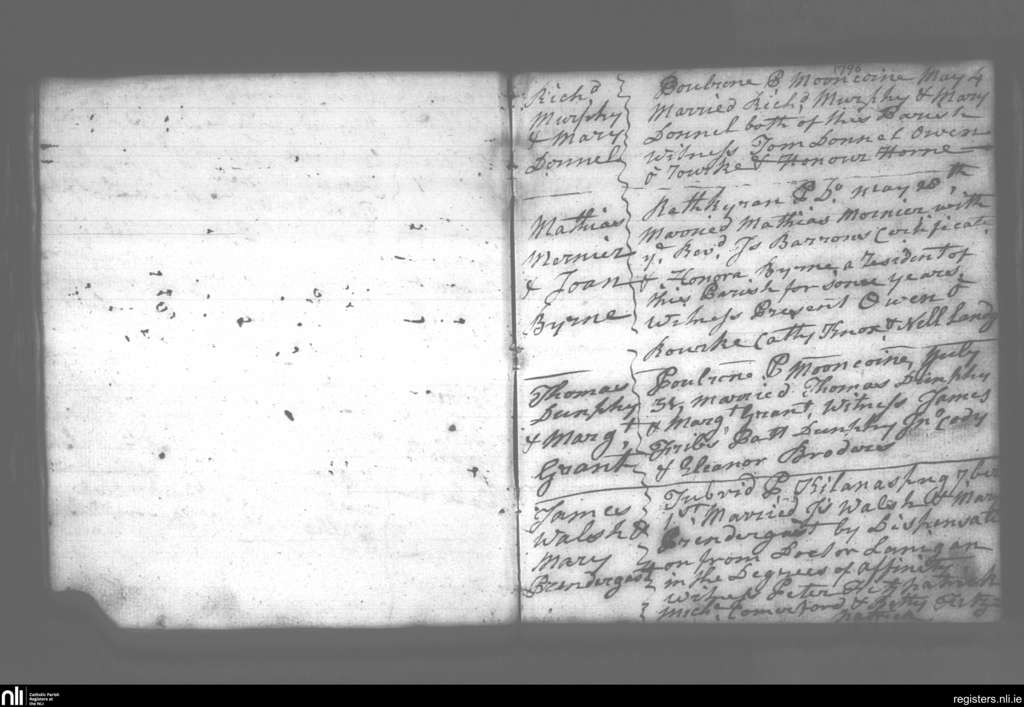 1796
Richd
Murphy
& Mary
Donnel
Poulrone P Mooncoine May 4
Married Richd Murphy & Mary
Donnel both of this Parish
Witness Tom Donnel Owen
O Rourke & Honour Horne
Mathias
Mernier
& Joan
Byrne
Rathkyran P Do May 28th
Married Mathias Mernier with
ye Revd Js Barrons Certificat
& Honora Byrne a Resident of
this Parish for some years
Witness Present Owen O
Rourke Catty Knox & Nell Landy
Thomas
Dunphy
& Margt
Grant
Poulrone P Mooncoine, July
31, married Thomas Dunphy
& Margt Grant, Witness James
Fribs Patt Dunphy Jno Cody
& Eleanor Broderes
James
Walsh &
Mary
Prendergast
Tubrid P Kilanaspug 7ber
1st Married Js Walsh & Mary
Prendergast by Dispensati
on from Doctor Lanigan
in the Degrees of affinity
Witness Peter Fitzpatrick
Michl Comerford & Betty Fitz
patrick
nli
Catholic Parish
Registers at
the NLI
registers.nli.ie